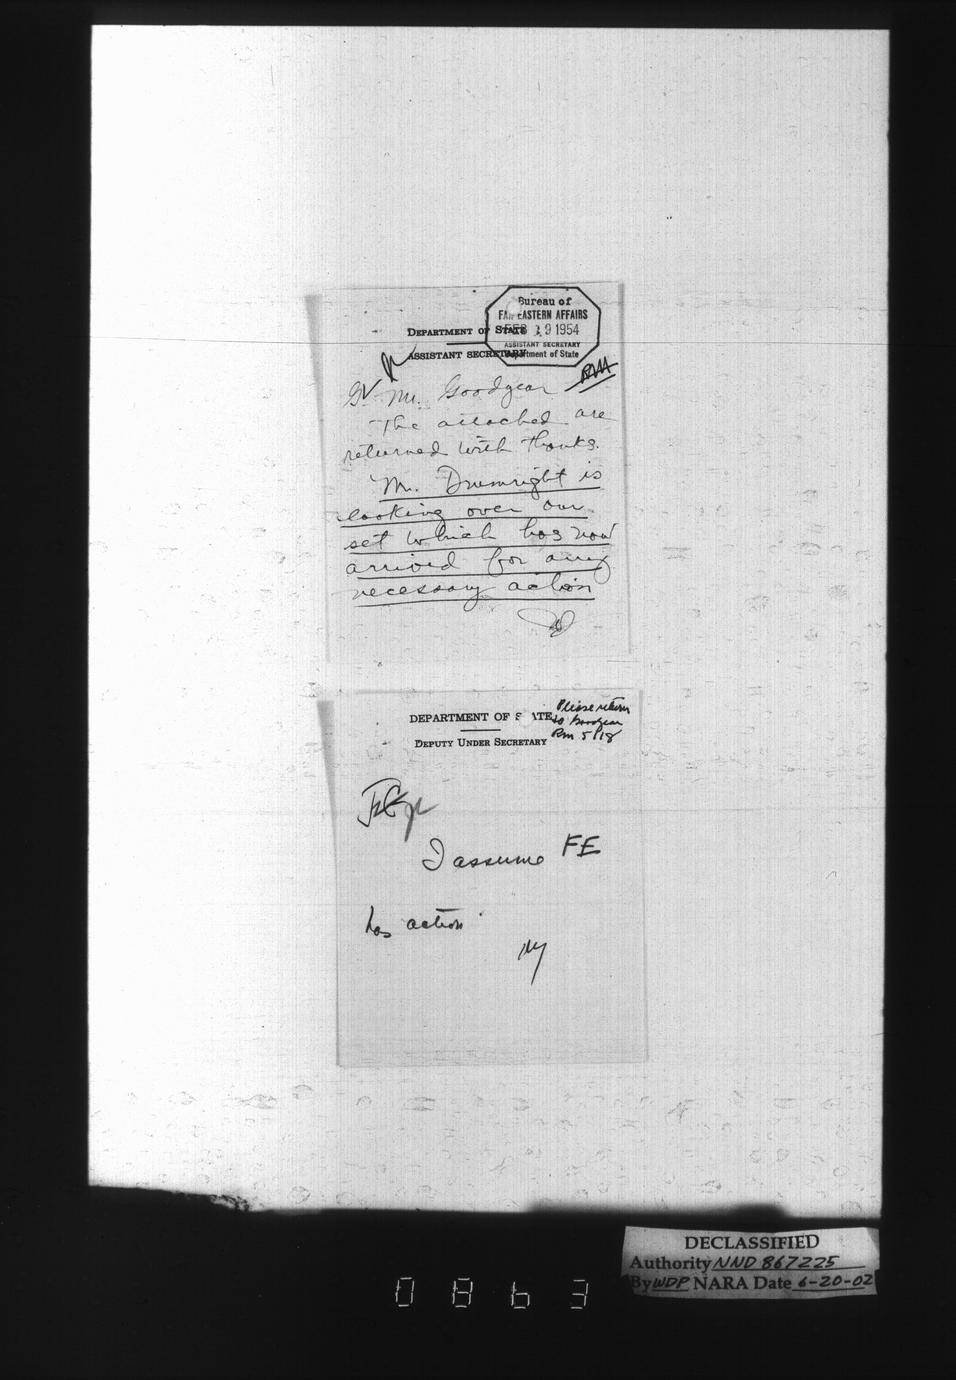 Bureau of
FAR EASTERN AFFAIRS
FEB 19 1954
ASSISTANT SECRETARY
Department of State
DEPARTMENT OF STATE
ASSISTANT SECRETARY
Mr. Goodyear
The attached are
returned with thanks.
Mr. Drumright is
looking over our
set which has now
arrived for any
necessary action
DEPARTMENT OF STATE
DEPUTY UNDER SECRETARY
Please return
to Goodyear
Rm 5118
I assume FE
has action
DECLASSIFIED
Authority NND 867225
By WDP NARA Date 6-20-02
0863